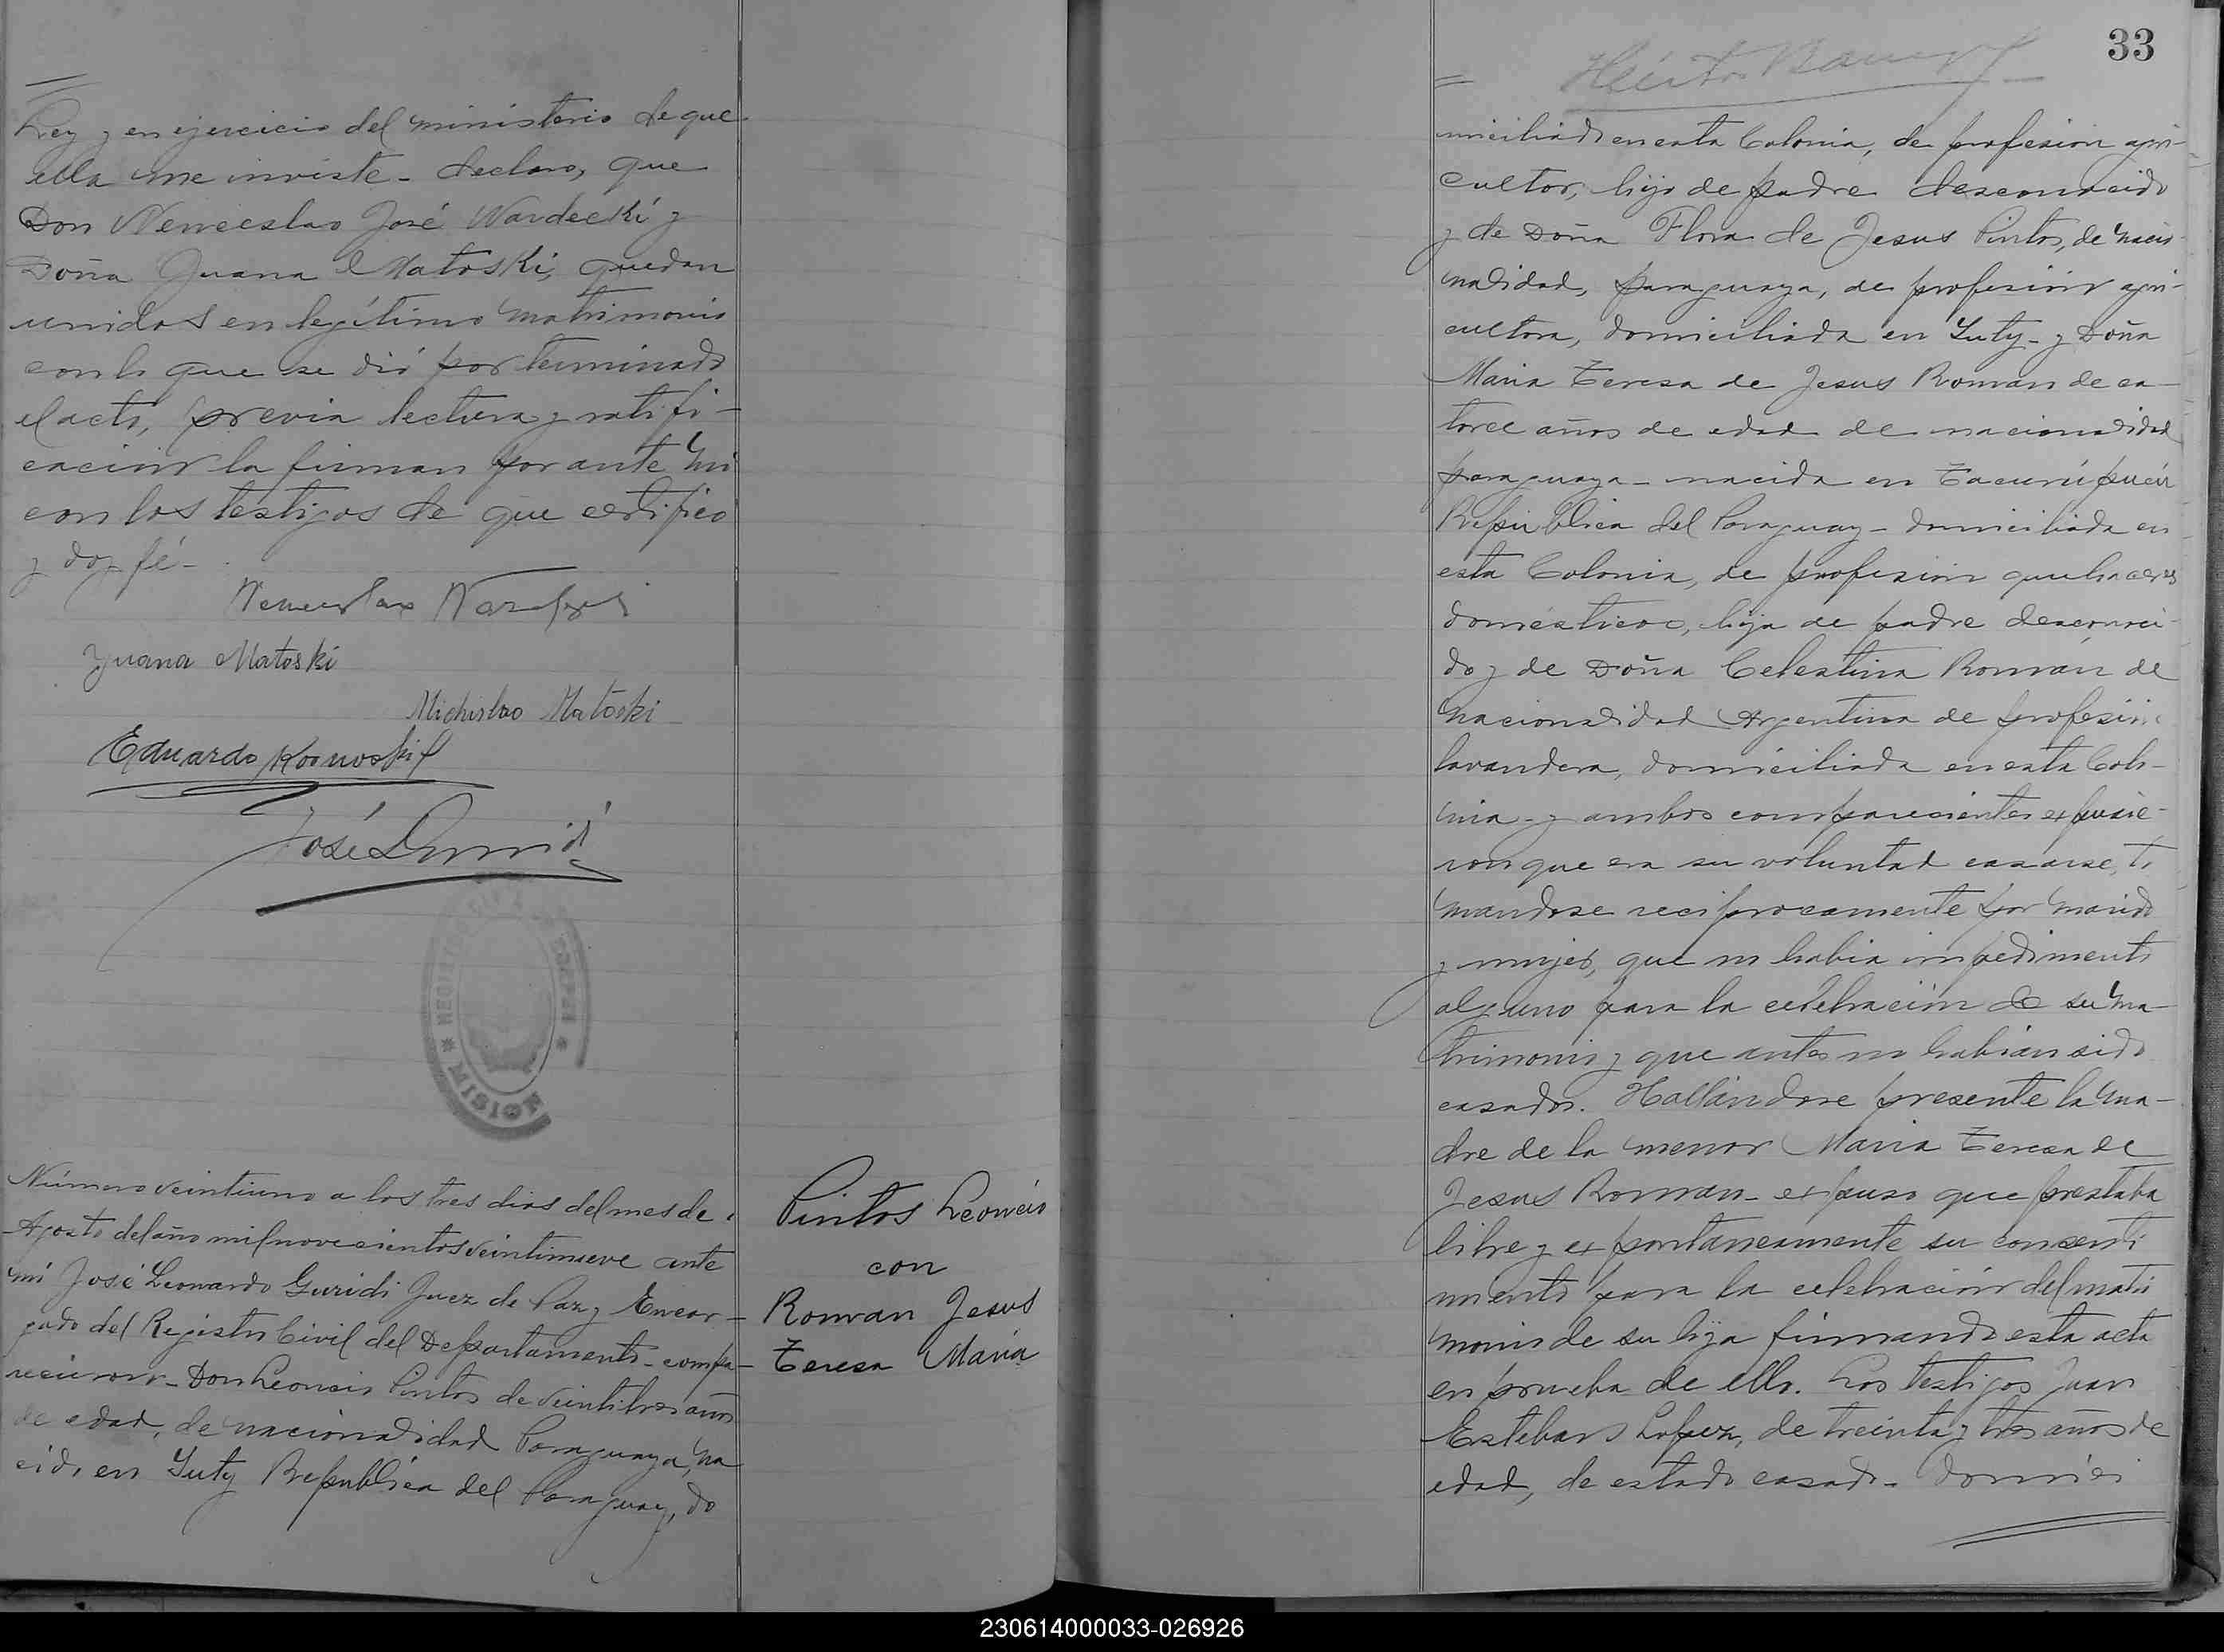 Ley y en ejercicio del ministerio de que
ella me inviste - declaro, que
Don Wenceslao José Wardecki y
Doña Juana Matoski, quedan
unidos en legítimo matrimonio
con lo que se dió por terminado
el acto, previa lectura y ratifi-
cación la firman por ante mi
con los testigos de que certifico
y doy fé -
Juana Matoski
Matoski
Eduardo
José
REGISTRO CIVIL
MISIONES
Número veintiuno a los tres dias del mes de
Agosto del año mil novecientos veintinueve ante
mi José Leonardo Guridi Juez de Paz y Encar-
gado del Registro Civil del Departamento - compa-
recieron - Don Leoncio Pintos de veintitres años
de edad, de nacionalidad Paraguaya, na
cido en Yuty República del Paraguay, do
Pintos Leoncio
con
Roman Jesus
Teresa Maria
33
Héctor
miciliado en esta Colonia, de profesion agri-
cultor, hijo de padre desconocido
y de Doña Flora de Jesus Pintos, de nacio-
nalidad, paraguaya, de profesión agri-
cultora, domiciliada en Yuty - y Doña
Maria Teresa de Jesus Roman de ca-
torce años de edad de nacionalidad
paraguaya - nacida en Tacurúpucú
República del Paraguay - domiciliada en
esta Colonia, de profesion quehaceres
domésticos, hija de padre desconoci-
do y de Doña Celestina Román de
nacionalidad Argentina de profesión
lavandera, domiciliada en esta Colo-
nia - y ambos comparecientes expusie-
ron que era su voluntad casarse, to
mandose reciprocamente por marido
y mujer, que no habia impedimento
alguno para la celebración de su ma-
trimonio y que antes no habian sido
casados. Hallándose presente la ma-
dre de la menor Maria Teresa de
Jesus Roman - expuso que prestaba
libre y expontaneamente su consenti
miento para la celebración del matri
monio de su hija firmando esta acta
en prueba de ello. Los testigos Juan
Esteban Lopez, de treinta y tres años de
edad, de estado casado - domici
230614000033-026926